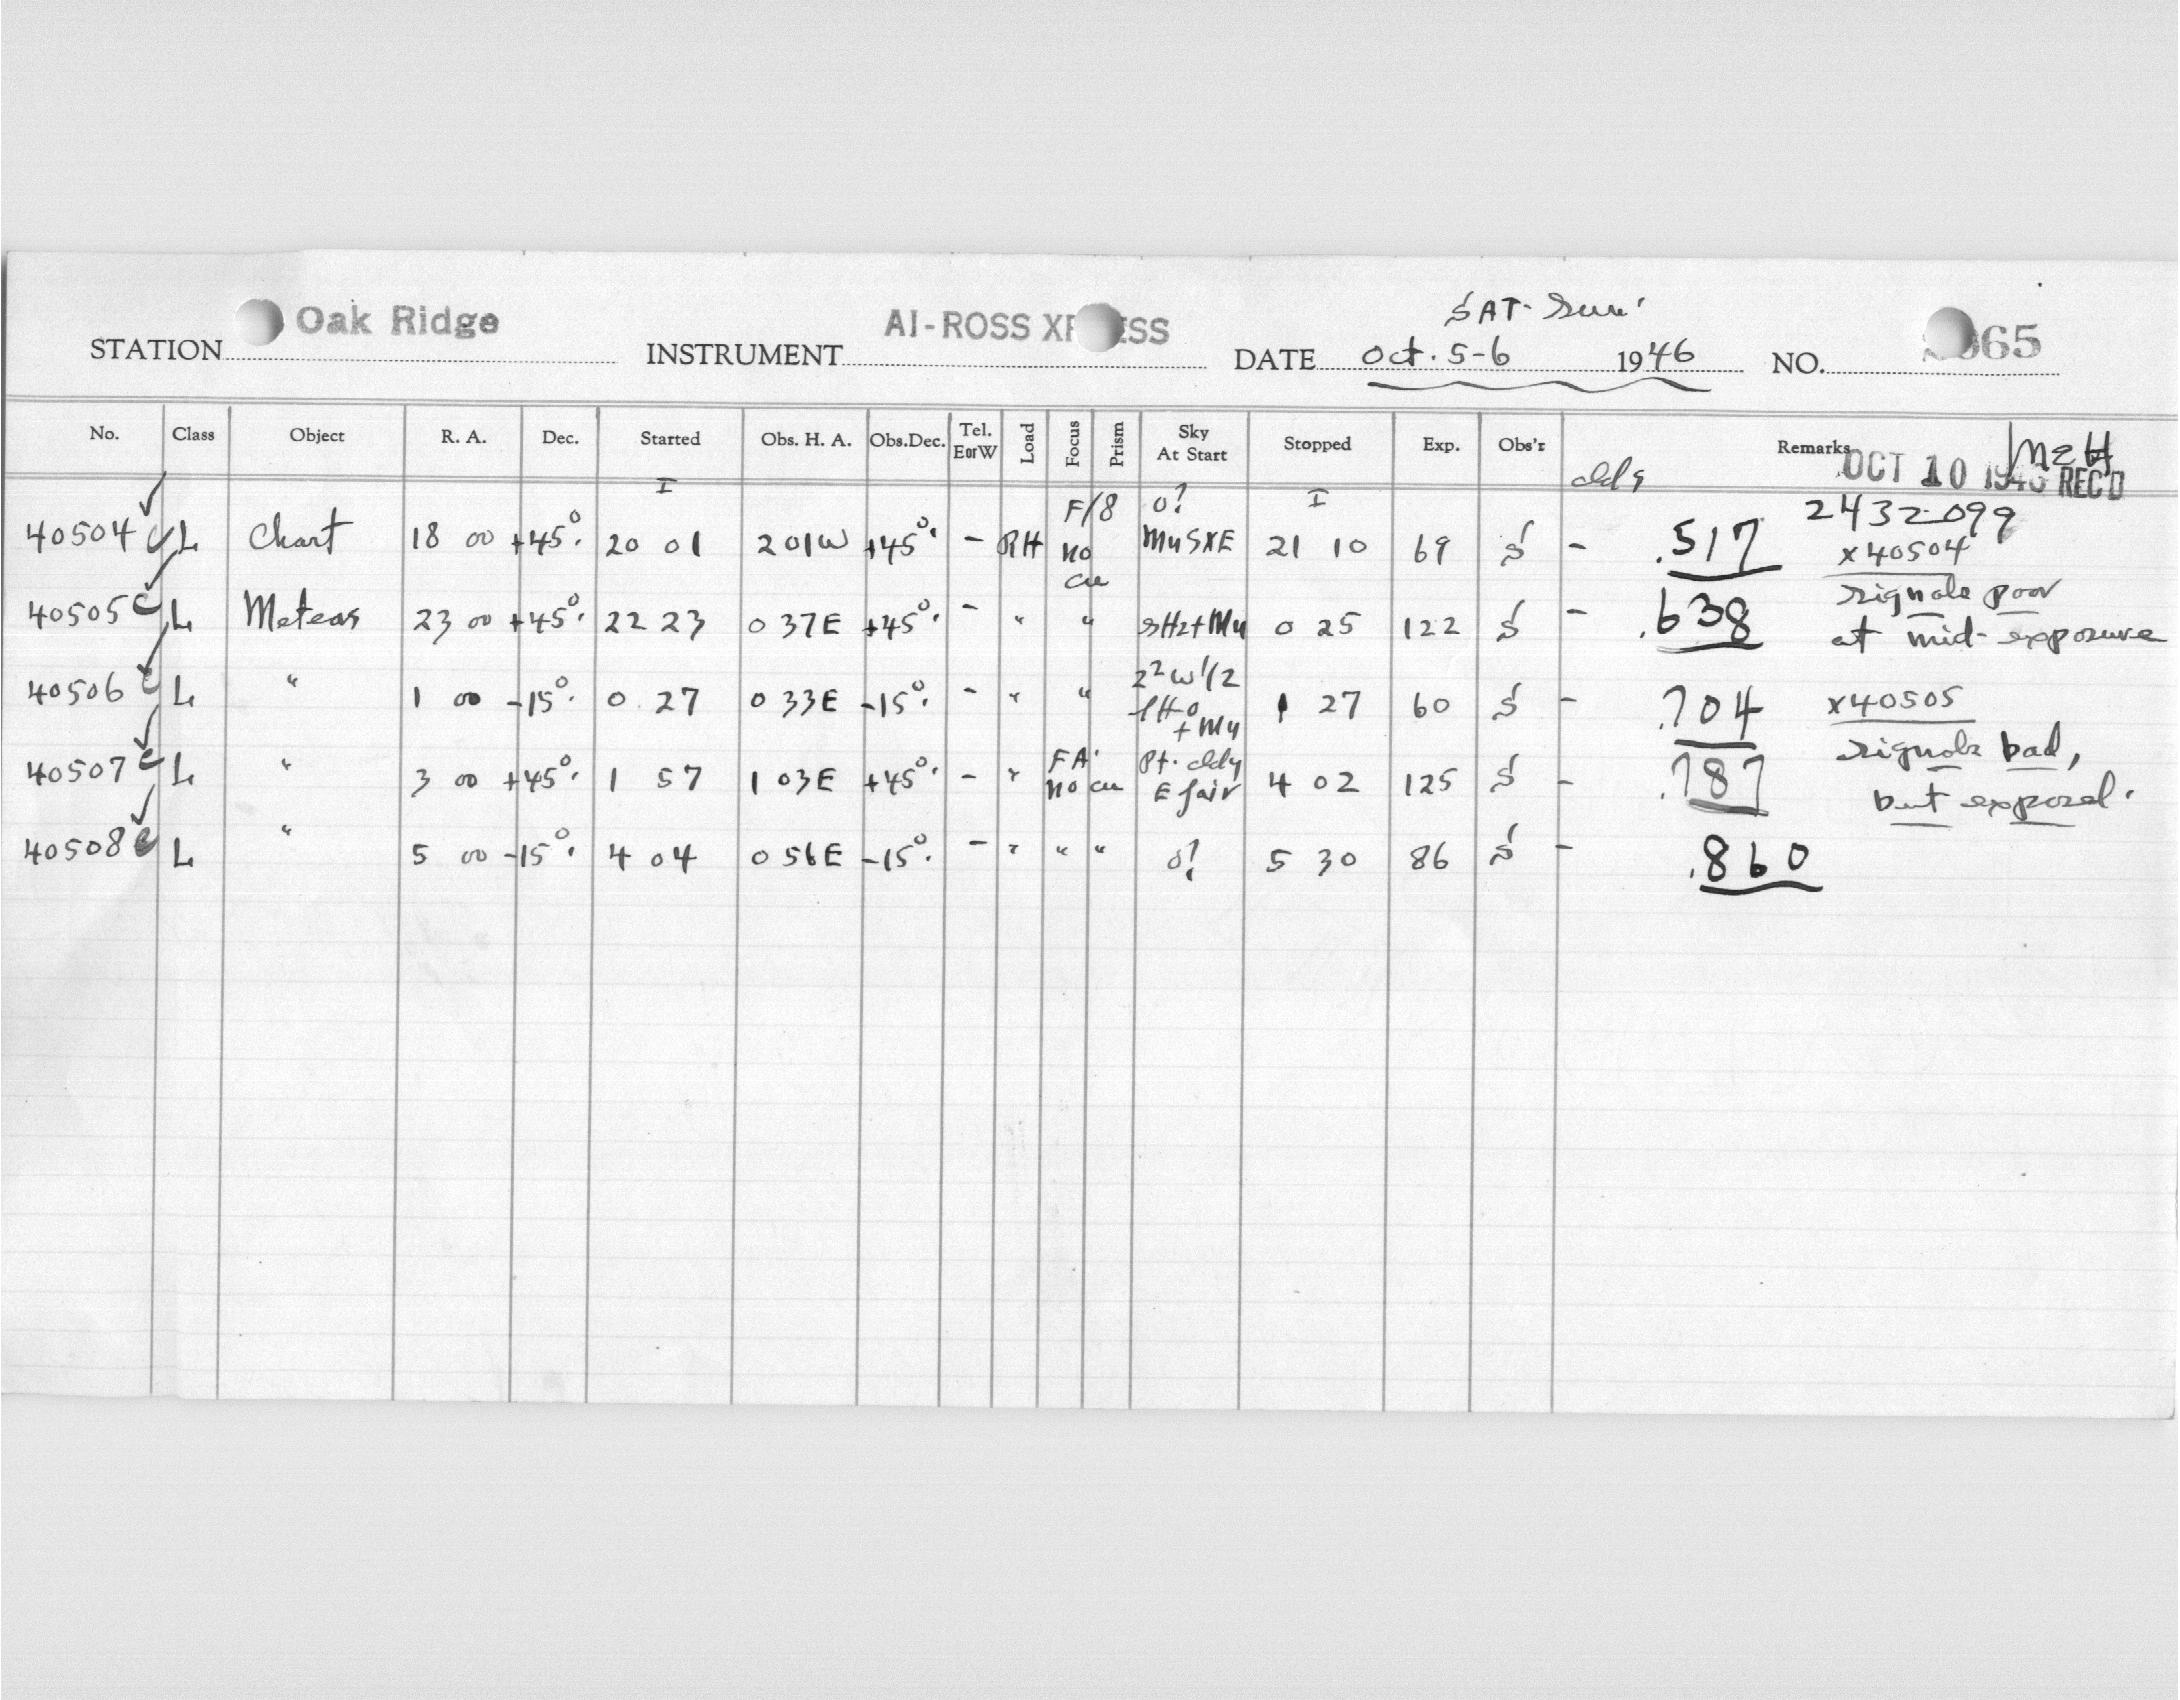 SAT-Sun.
STATION Oak Ridge INSTRUMENT AI-ROSS XPRESS DATE Oct. 5-6 1946 NO. 65
No. Class Object R. A. Dec. Started Obs. H. A. Obs.Dec. Tel. EorW Load Focus Prism Sky At Start Stopped Exp. Obs'r Remarks
OCT 10 1946 REC'D
cldy
I I
F/8 o? 2432099
40504 L Chart 18 00 +45°. 20 01 2 01W +45°. - RH no MuSXE 21 10 69 S - .517 x40504
signals poor
40505 L Meteors 23 00 +45°. 22 23 0 37E +45°. - " " 0 25 122 S - .638 at mid-exposure
40506 L " 1 00 -15°. 0 27 0 33E -15°. - " " + Mu 1 27 60 S - .704 x40505
FA. Pt. cldy signals bad,
40507 L " 3 00 +45°. 1 57 1 03E +45°. - " no E fair 4 02 125 S - .787 but exposed.
40508 L " 5 00 -15°. 4 04 0 56E -15°. - " " " o? 5 30 86 S - .860